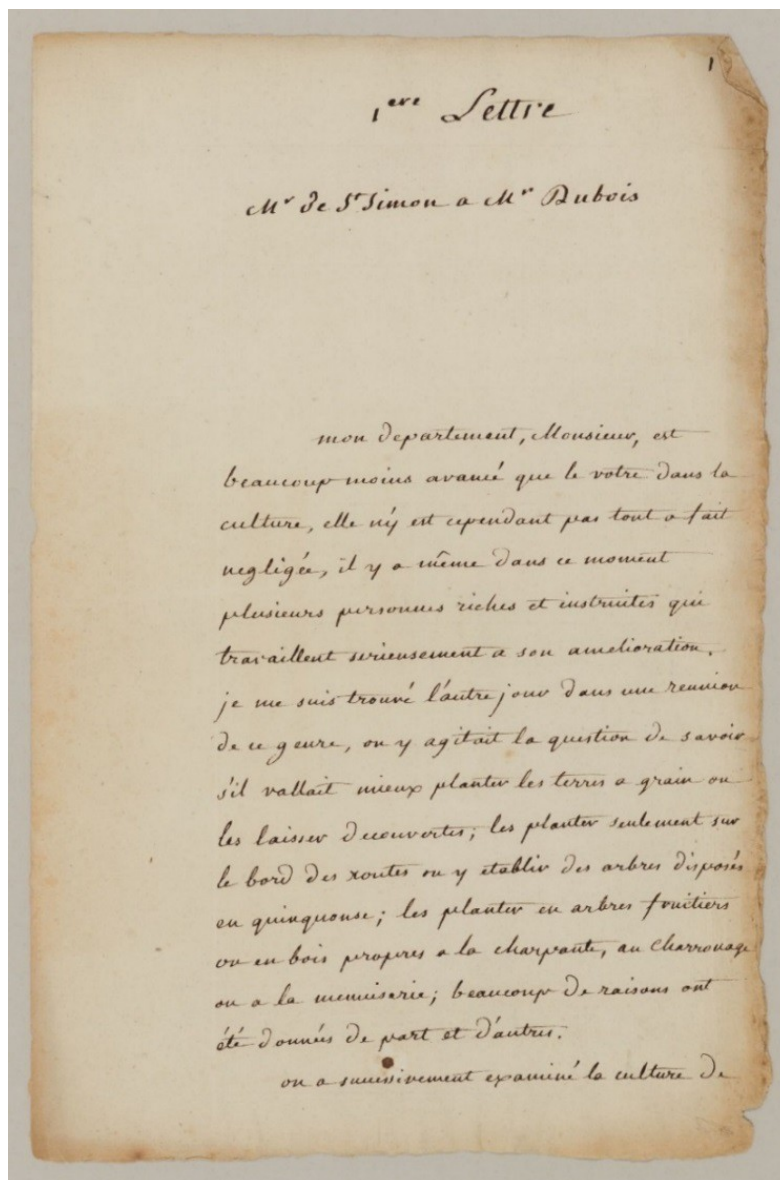 1
1ere Lettre
Mr de St Simon a Mr Dubois
mon departement, Monsieur, est
beaucoup moins avancé que le votre dans la
culture, elle n'y est cependant pas tout a fait
negligée, il y a même dans ce moment
plusieurs personnes riches et instruites qui
travaillent serieusement a son amelioration.
je me suis trouvé l'autre jour dans une reunion
de ce genre, on y agitait la question de savoir
s'il vallait mieux planter les terres a grain ou
les laisser decouvertes; les planter seulement sur
le bord des routes ou y etablir des arbres disposés
en quinquonse; les planter en arbres fruitiers
ou en bois propres a la charpante, au Charronage
ou a la menuiserie; beaucoup de raisons ont
été données de part et d'autres.
on a successivement examiné la culture de